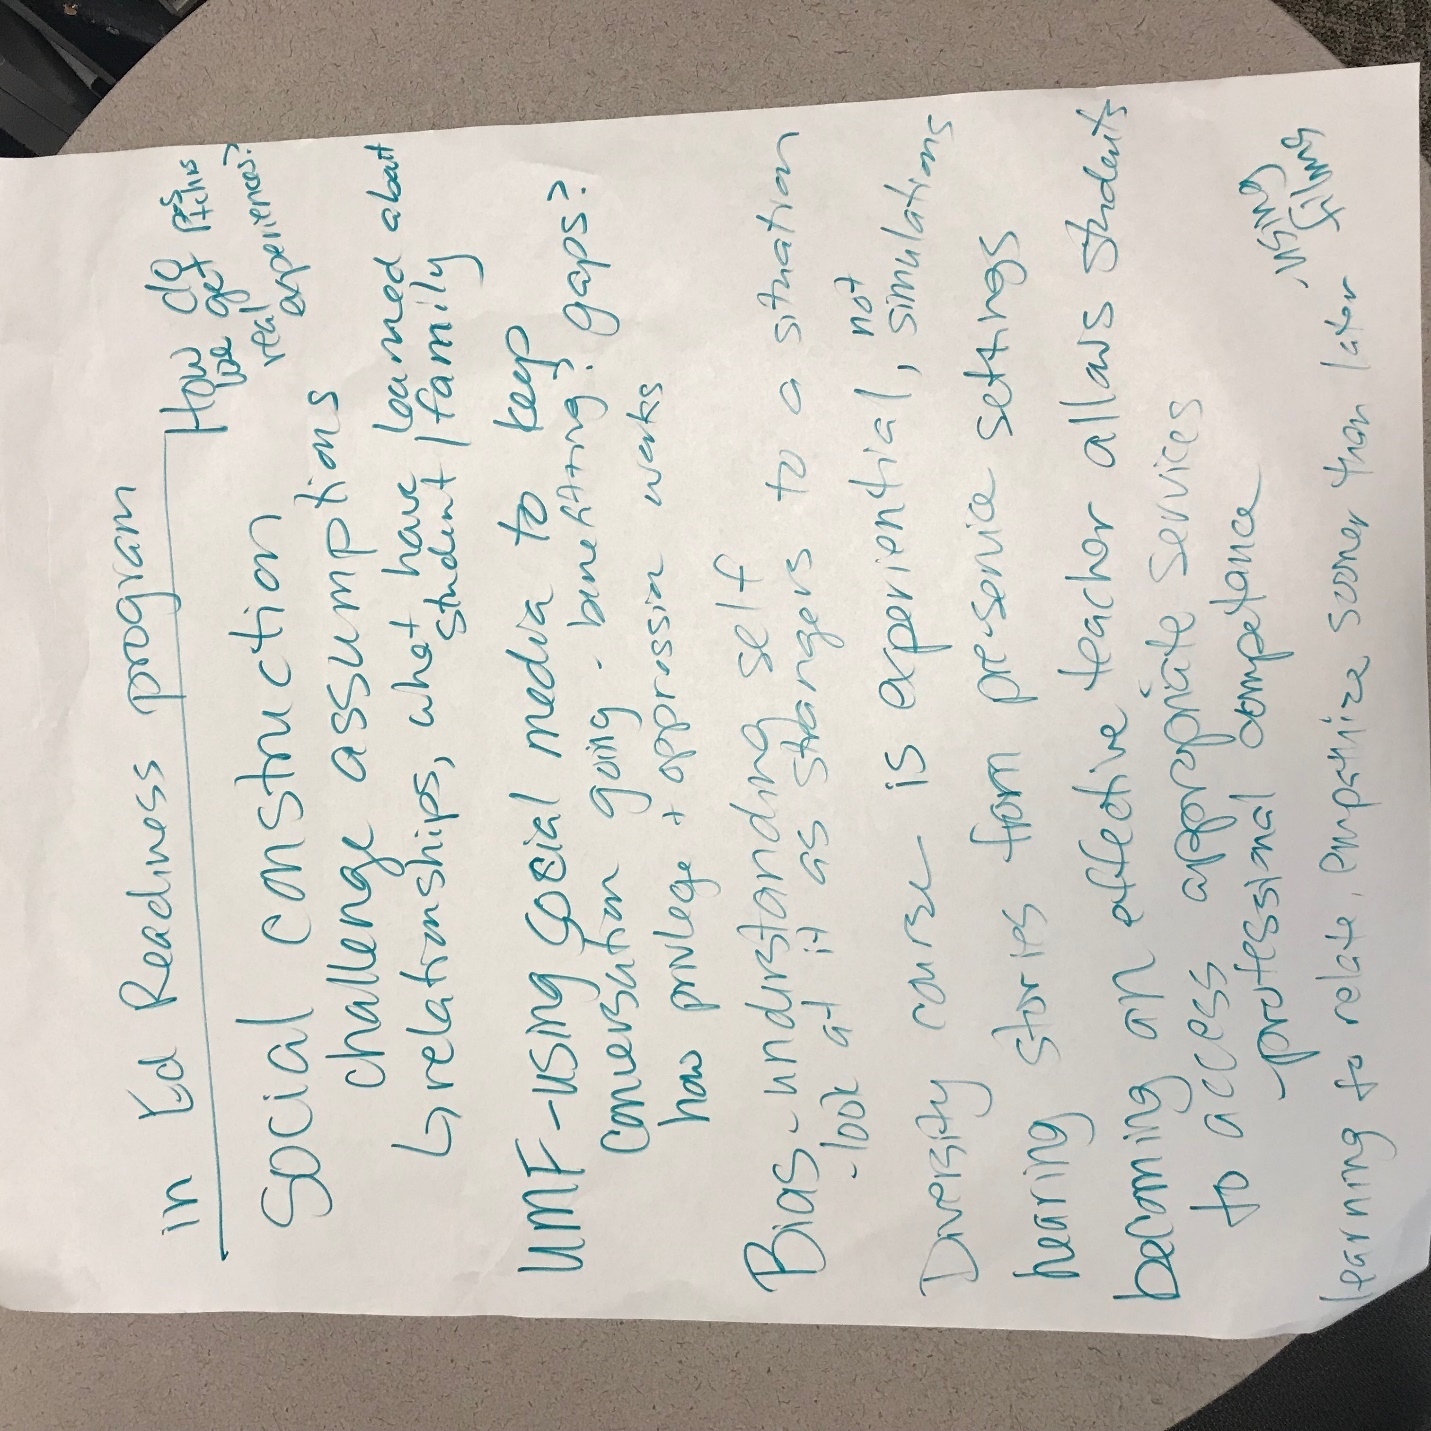 in Ed Readiness program
How do
we get
real
experiences?
Social construction
challenge assumptions
↳ relationships, what have learned about
student / family
UMF - using social media to keep
conversation going. benefitting? gaps?
how privlege + oppression works
Bias - understanding self
- look at it as strangers to a situation
Diversity course is experiential, not simulations
hearing stories from pre-service settings
becoming an effective teacher allows students
to access appropriate services
- professional competance
learning to relate, empathize sooner than later, using
films